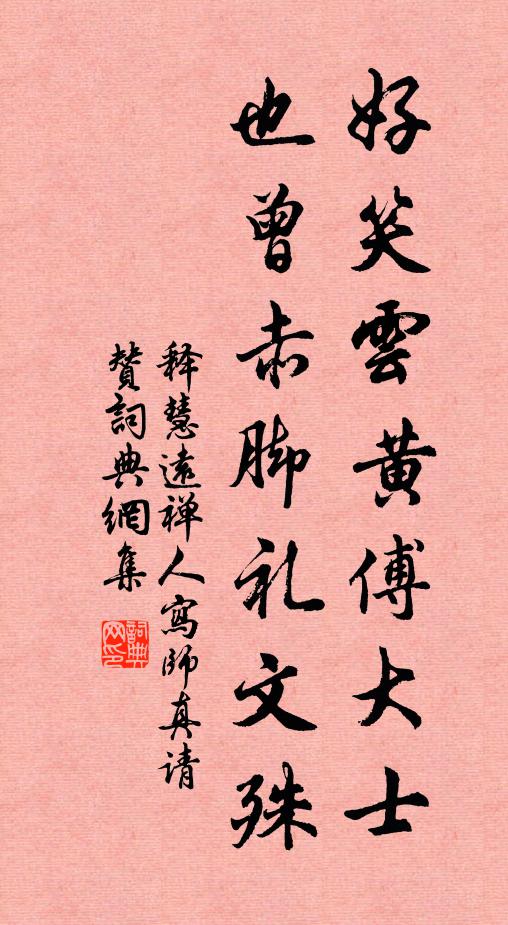 好笑雲黄傅大士
也曾赤脚礼文殊
释慧遠禅人寫師真请
赞詞典網集
詞典网印